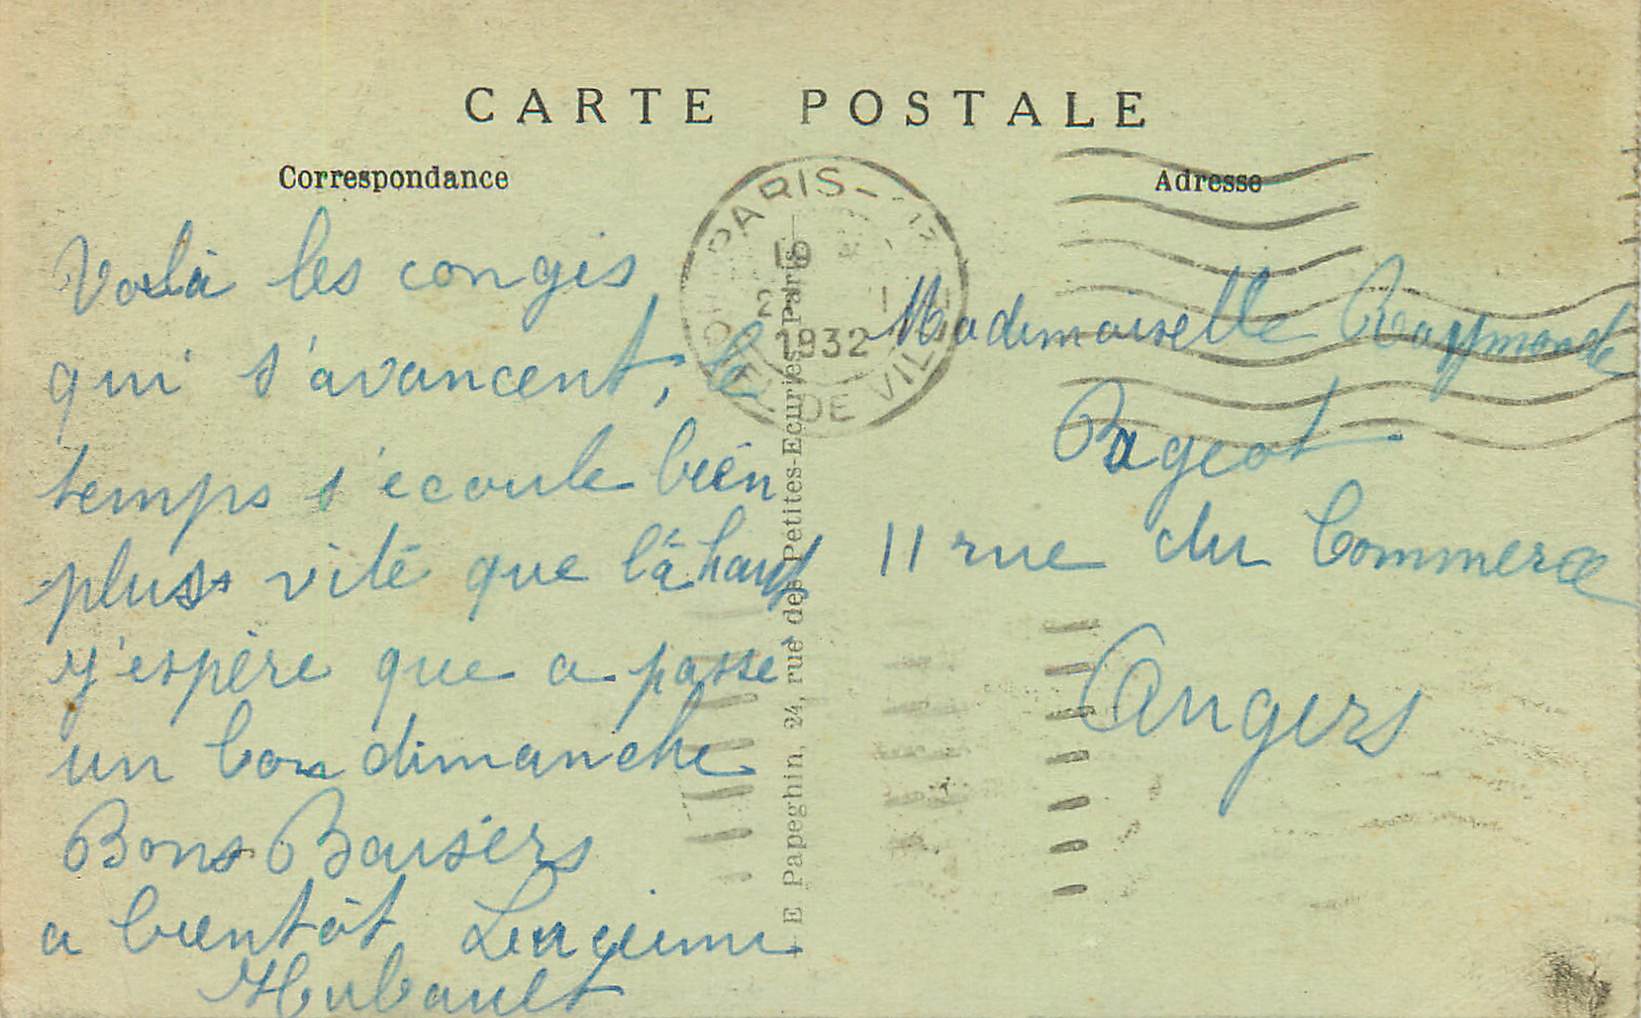 CARTE POSTALE
Correspondance
Adresse
PARIS
19
1932
DE VILLE
Voilà les congis
qui s'avancent, le
temps s'ecoule bien
pluss vite que là haut
y'espère que a passe
un bon dimanche
Bons Baisers
a bientôt
Hubault
Mademoiselle Raymonde
Pageot
11 rue du Commerce
Angers
E Papeghin, 24, rue des Petites-Ecuries, Paris.